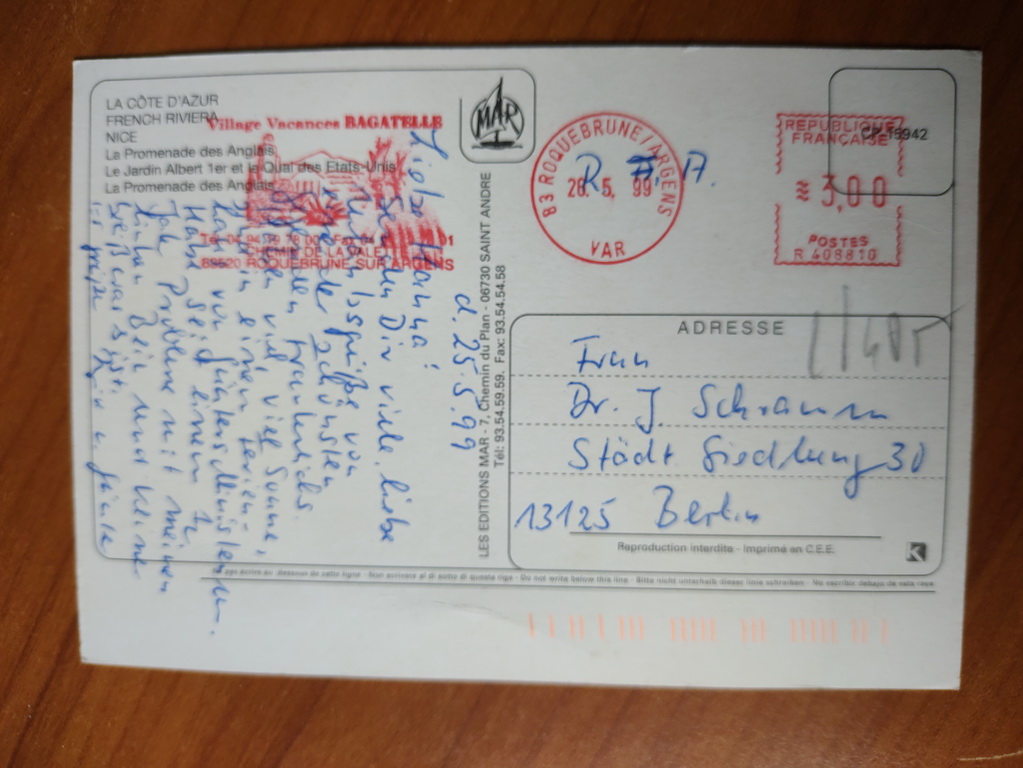 LA CÔTE D'AZUR
FRENCH RIVIERA
NICE
La Promenade des Anglais
Le Jardin Albert 1er et le Quai des Etats-Unis
La Promenade des Anglais
Village Vacances BAGATELLE
CHEMIN DE LA VALETTE
83520 ROQUEBRUNE SUR ARGENS
MAR
83 ROQUEBRUNE/ARGENS
26.5. 99
VAR
R A.
REPUBLIQUE
FRANÇAISE
3,00
POSTES
R 408810
CP 15942
d. 25.5.99
Liebe Hanna!
Senden Dir viele liebe
Urlaubsgrüße von
der schönsten
Gegend Frankreichs.
viel viel Sonne,
einen Ferien-
von Günters Ministerium.
Habe seit einem 1/2
Jahr Probleme mit meinem
linken Bein und keine
weiß was es ist.
u. Günter
LES EDITIONS MAR - 7, Chemin du Plan - 06730 SAINT ANDRE
Tél: 93.54.59.59. Fax: 93.54.54.58
ADRESSE
Frau
Dr. J. Schramm
Städt. Siedlung 30
13125 Berlin
Reproduction interdite - Imprimé en C.E.E.
K
Ne pas écrire au-dessous de cette ligne - Non scrivere al di sotto di questa riga - Do not write below this line - Bitte nicht unterhalb dieser linie schreiben - No escribir debajo de esta raya